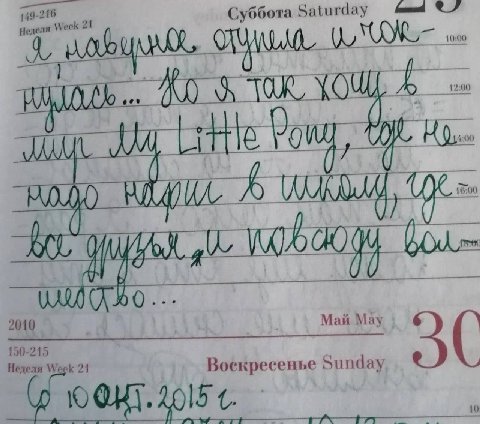 149-216
Суббота Saturday
Неделя Week 21
я, наверное отупела и чок-
10:00
нулась... Но я так хочу в
12:00
мир My Little Pony, где не
14:00
надо нафиг в школу, где
16:00
все друзья, и повсюду вол
шебство...
2010
Май May
30
150-215
Воскресенье Sunday
Неделя Week 21
Сб 10 окт. 2015 г.